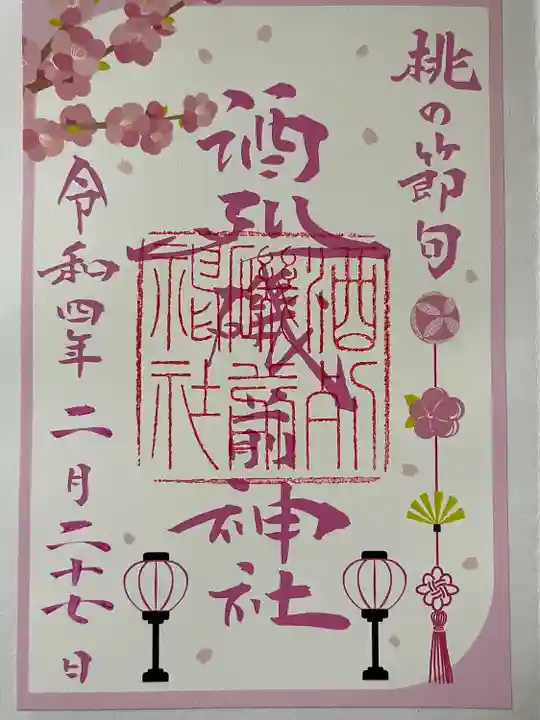 桃の節句
酒列磯前神社
酒列磯前神社
令和四年 二月二十七日